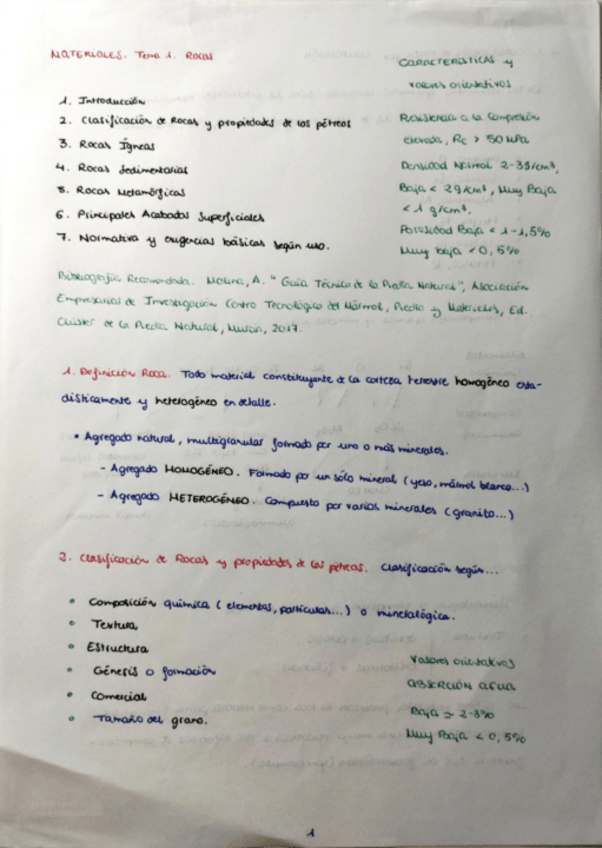 MATERIALES. Tema 1. Rocas
1. Introducción
2. Clasificación de Rocas y propiedades de los pétreos
3. Rocas Ígneas
4. Rocas Sedimentarias
5. Rocas Metamórficas
6. Principales Acabados Superficiales
7. Normativa y exigencias básicas según uso.
CARACTERÍSTICAS y
valores orientativos
Resistencia a la Compresión
elevada, Rc > 50 MPa
Densidad Normal 2-3g/cm³,
Baja < 2g/cm³, Muy Baja
< 1 g/cm³.
Porosidad Baja < 1-1,5%
Muy baja < 0,5%
Bibliografía Recomendada. Molina, A. "Guía Técnica de la Piedra Natural", Asociación
Empresarial de Investigación Centro Tecnológico del Mármol, Piedra y Materiales, Ed.
Clúster de la Piedra Natural, Murcia, 2017.
1. Definición Roca. Todo material constituyente de la corteza terrestre homogéneo esta-
dísticamente y heterogéneo en detalle.
• Agregado natural, multigranular formado por uno o más minerales.
- Agregado HOMOGÉNEO. Formado por un sólo mineral (yeso, mármol blanco...)
- Agregado HETEROGÉNEO. Compuesto por varios minerales (granito...)
2. Clasificación de Rocas y propiedades de los pétreos. Clasificación según...
• Composición química (elementos, partículas...) o mineralógica.
• Textura
• Estructura
• Génesis o formación
• Comercial
• Tamaño del grano.
Valores orientativos
ABSORCIÓN AGUA
Baja ≃ 2-3%
Muy Baja < 0,5%
1